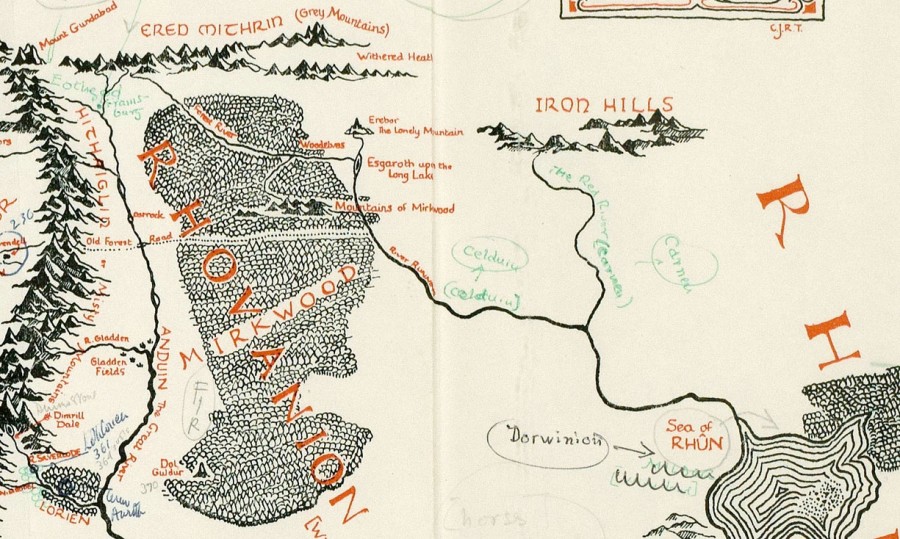 Mount Gundabad
ERED MITHRIN (Grey Mountains)
Withered Heath
C.J.R.T.
IRON HILLS
Forest River
Erebor
The Lonely Mountain
Woodelves
Esgaroth upon the
Long Lake
Mountains of Mirkwood
HITHAEGLIR
Misty Mountains
Old Forest Road
River Running
Celduin
(Celduin)
The Red River (Carnen)
Carnen
RHOVANION
MIRKWOOD
R. Gladden
Gladden
Fields
ANDUIN The Great River
Dimrill
Dale
R. Silverlode
Lothlórien
LORIEN
Dol
Guldur
Dorwinion
Sea of
RHÛN
horses
R
H